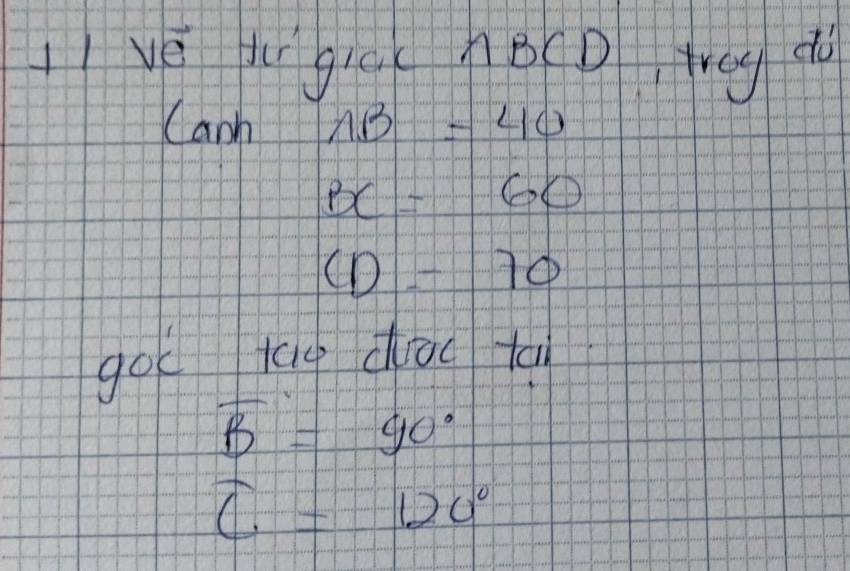 1/ Vẽ tứ giác ABCD, trog đó
Cạnh AB = 40
BC = 60
CD = 70
góc tạo được tại
B = 90°
C = 120°